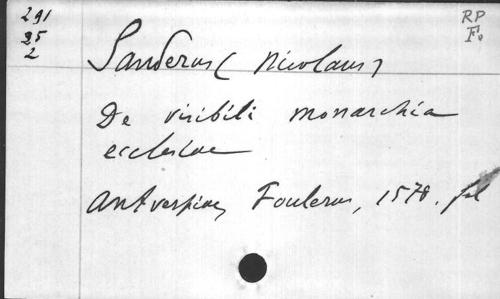 291
95
2
RP
F°
Sanderus (Nicolaus)
De visibili monarchia
ecclesiae
Antverpiae, Foulerus, 1578. fol